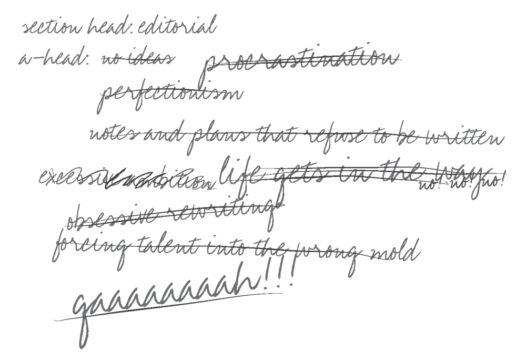 section head: editorial
a-head: no ideas procrastination
perfectionism
notes and plans that refuse to be written
excessive ambition life gets in the way no! no! no!
obsessive rewriting
forcing talent into the wrong mold
gaaaaaaaah!!!